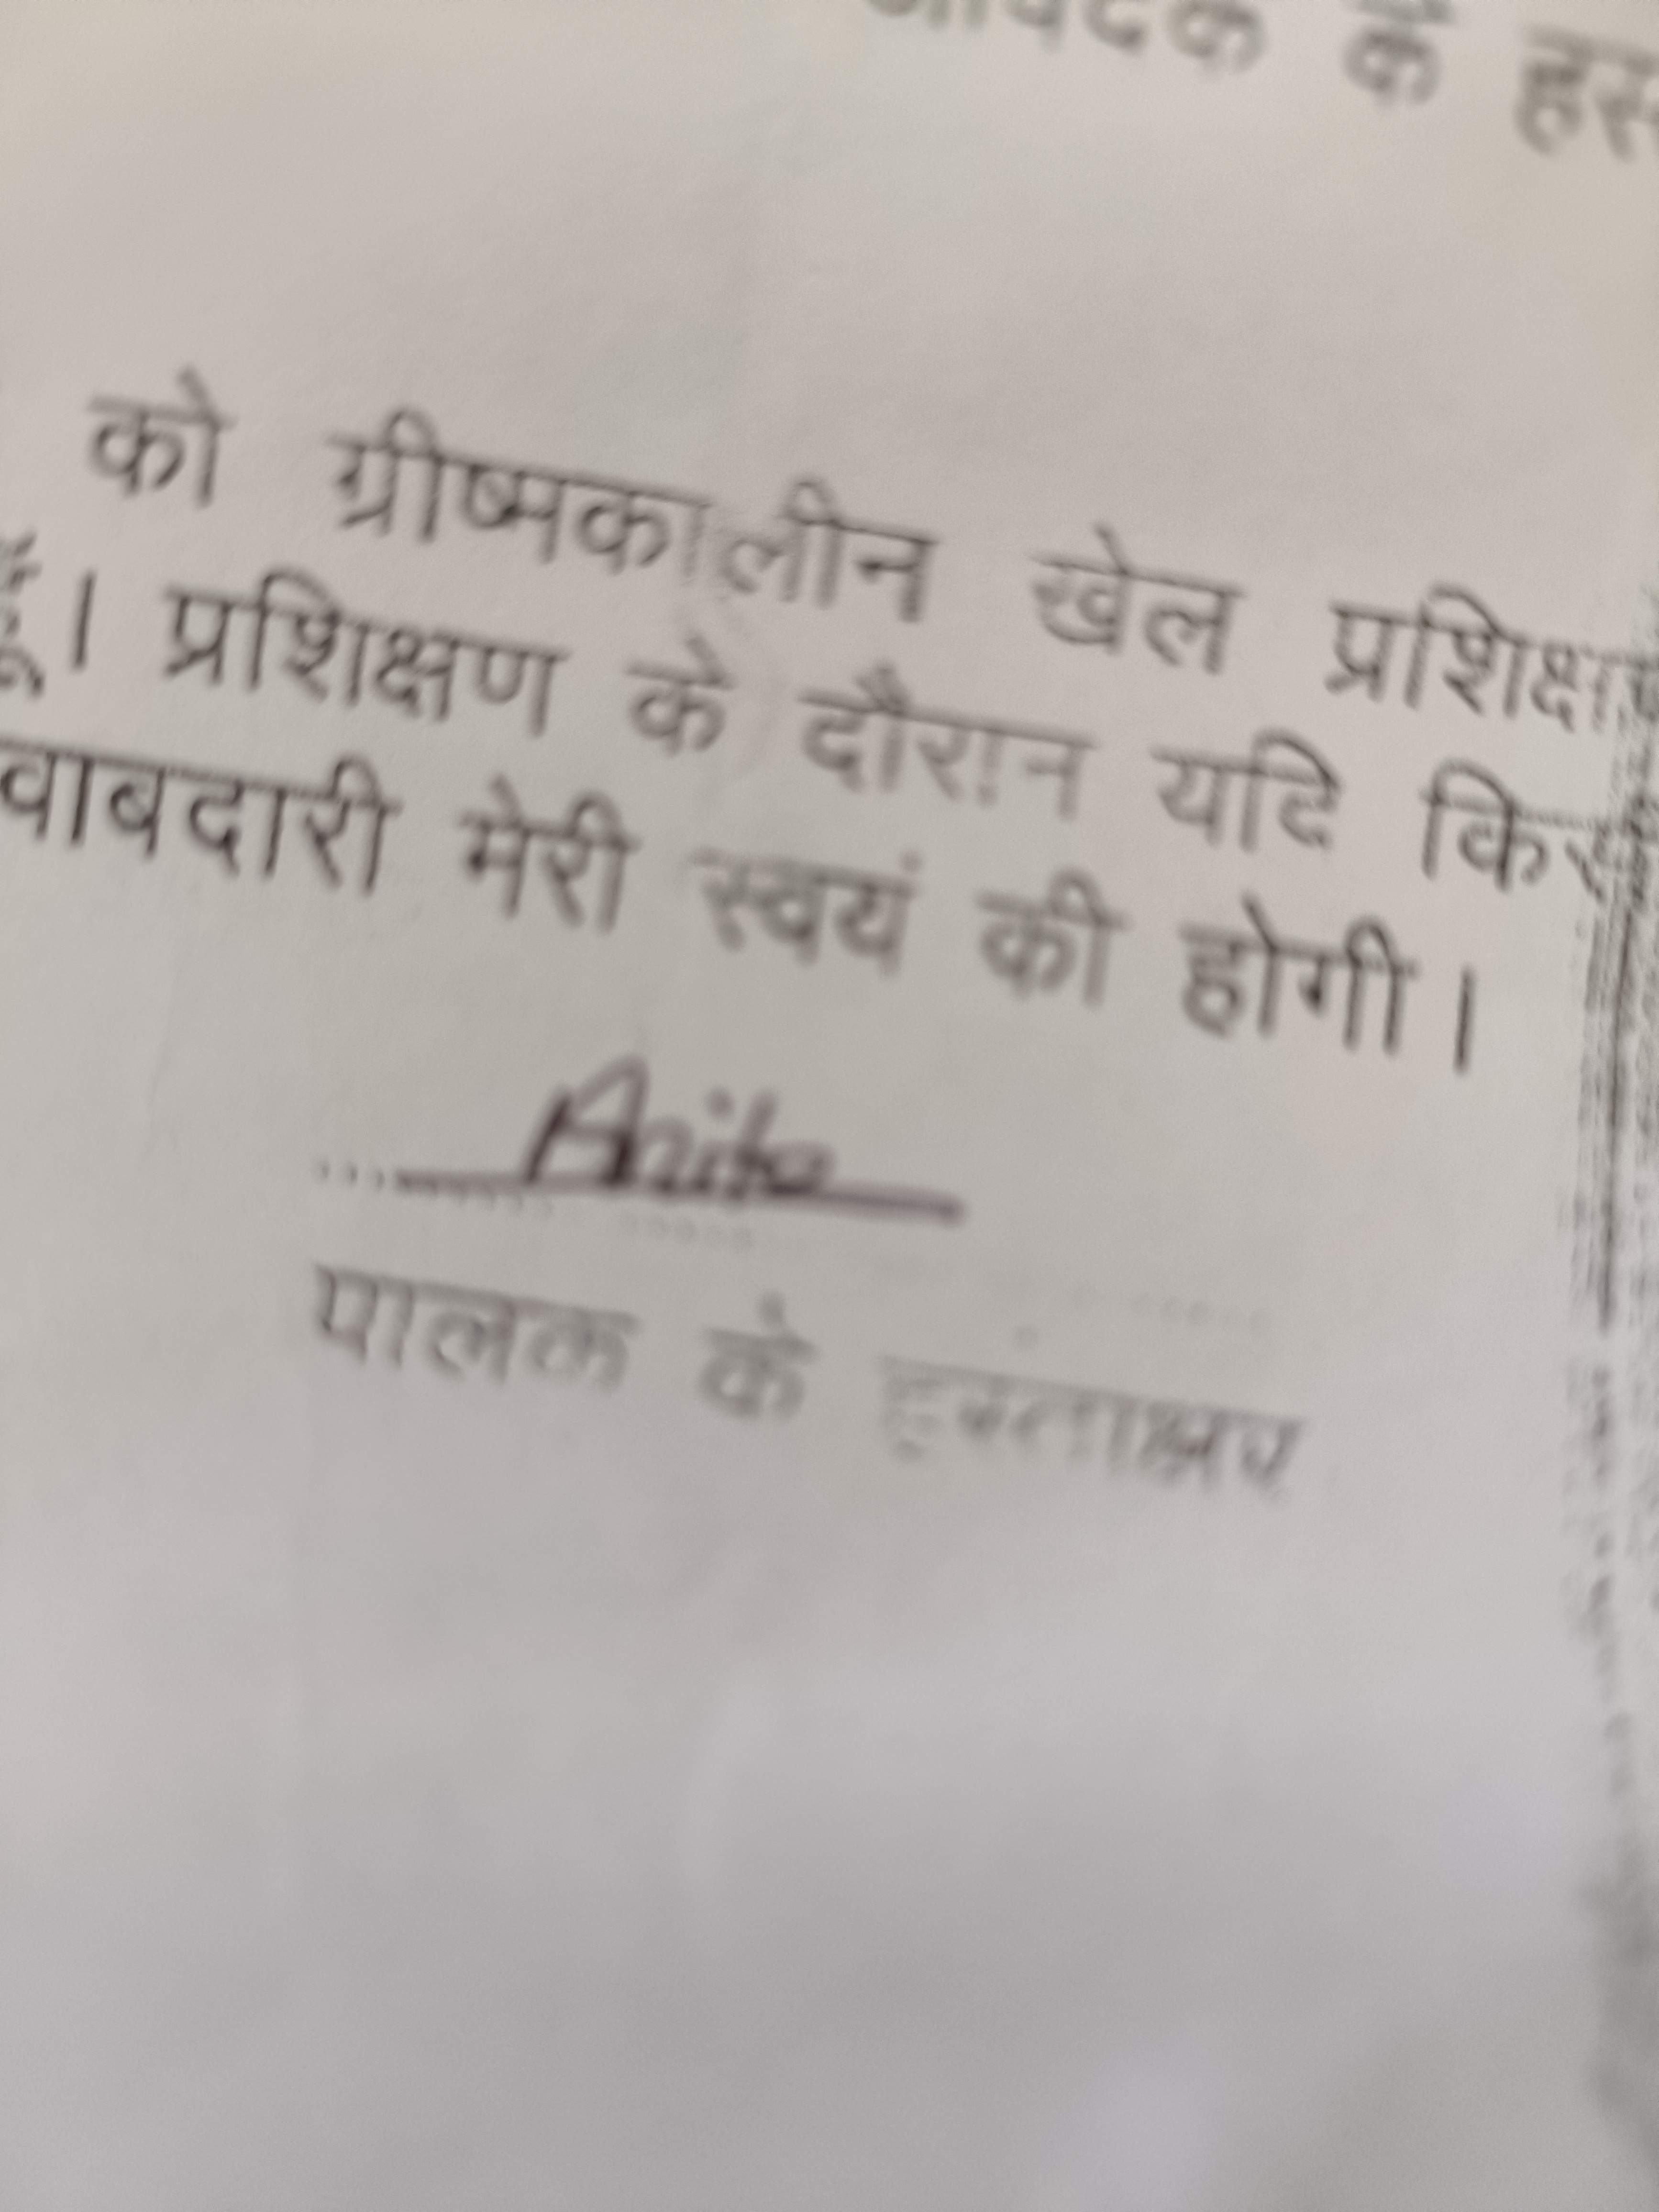 आवेदक के हस्
को ग्रीष्मकालीन खेल प्रशिक्षण
हूँ। प्रशिक्षण के दौरान यदि किसी
वाबदारी मेरी स्वयं की होगी।
Anita
पालक के हस्ताक्षर